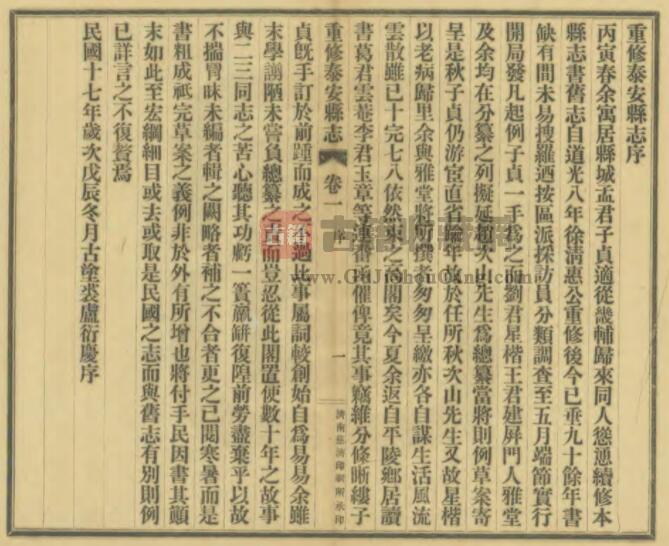 重修泰安縣志序
丙寅春余寓居縣城孟君子貞適從畿輔歸來同人慫慂續修本
縣志書舊志自道光八年徐淸惠公重修後今已垂九十餘年書
缺有間未易搜羅迺按區派採訪員分類調查至五月端節實行
開局發凡起例子貞一手爲之而劉君星楷王君建屏門人雅堂
及余均在分纂之列擬延趙次山先生爲總纂當將則例草案寄
呈是秋子貞仍游宦直省踰年故於任所秋次山先生又故星楷
以老病歸里余與雅堂將所撰者匆匆呈繳亦各自謀生活風流
雲散雖已十完七八依然束之高閣矣今夏余返自平陵鄉居讀
書葛君雲菴李君玉章等連番函催俾竟其事竊維分修晰縷子
重修泰安縣志 卷一 序 一 濟南慈濟印刷所承印
貞旣手訂於前踵而成之不過比事屬詞較創始自爲易易余雖
末學謭陋未嘗負總纂之名而豈忍從此閣置使數十年之故事
與二三同志之苦心聽其功虧一簣瓶缾復隍前勞盡棄乎以故
不揣冒昧未編者輯之闕略者補之不合者更之已閱寒暑而是
書粗成祇完草案之義例非於外有所增也將付手民因書其顚
末如此至宏綱細目或去或取是民國之志而與舊志有別則例
已詳言之不復贅焉
民國十七年歲次戊辰冬月古塗裘盧衍慶序
古籍收藏网
www.GuJiShouCang.com